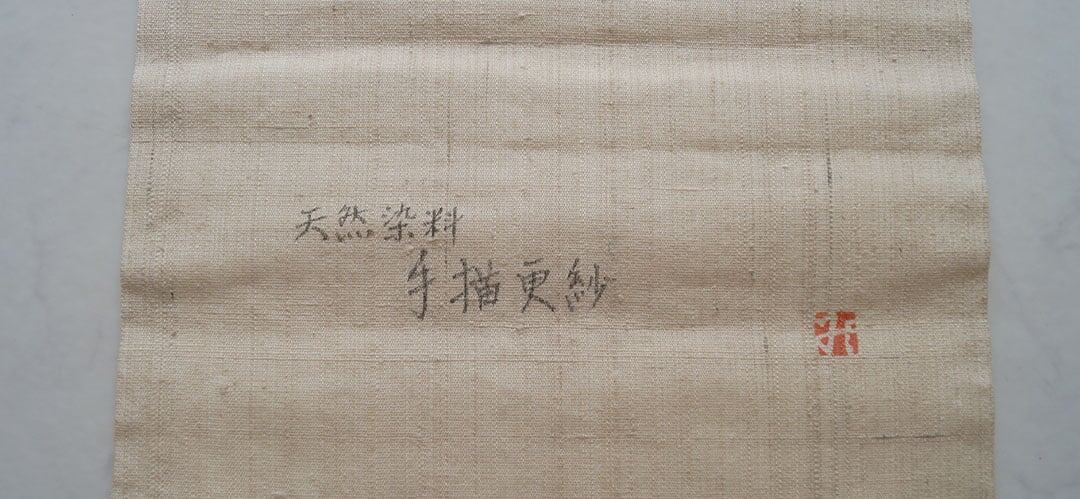 天然染料
手描更紗